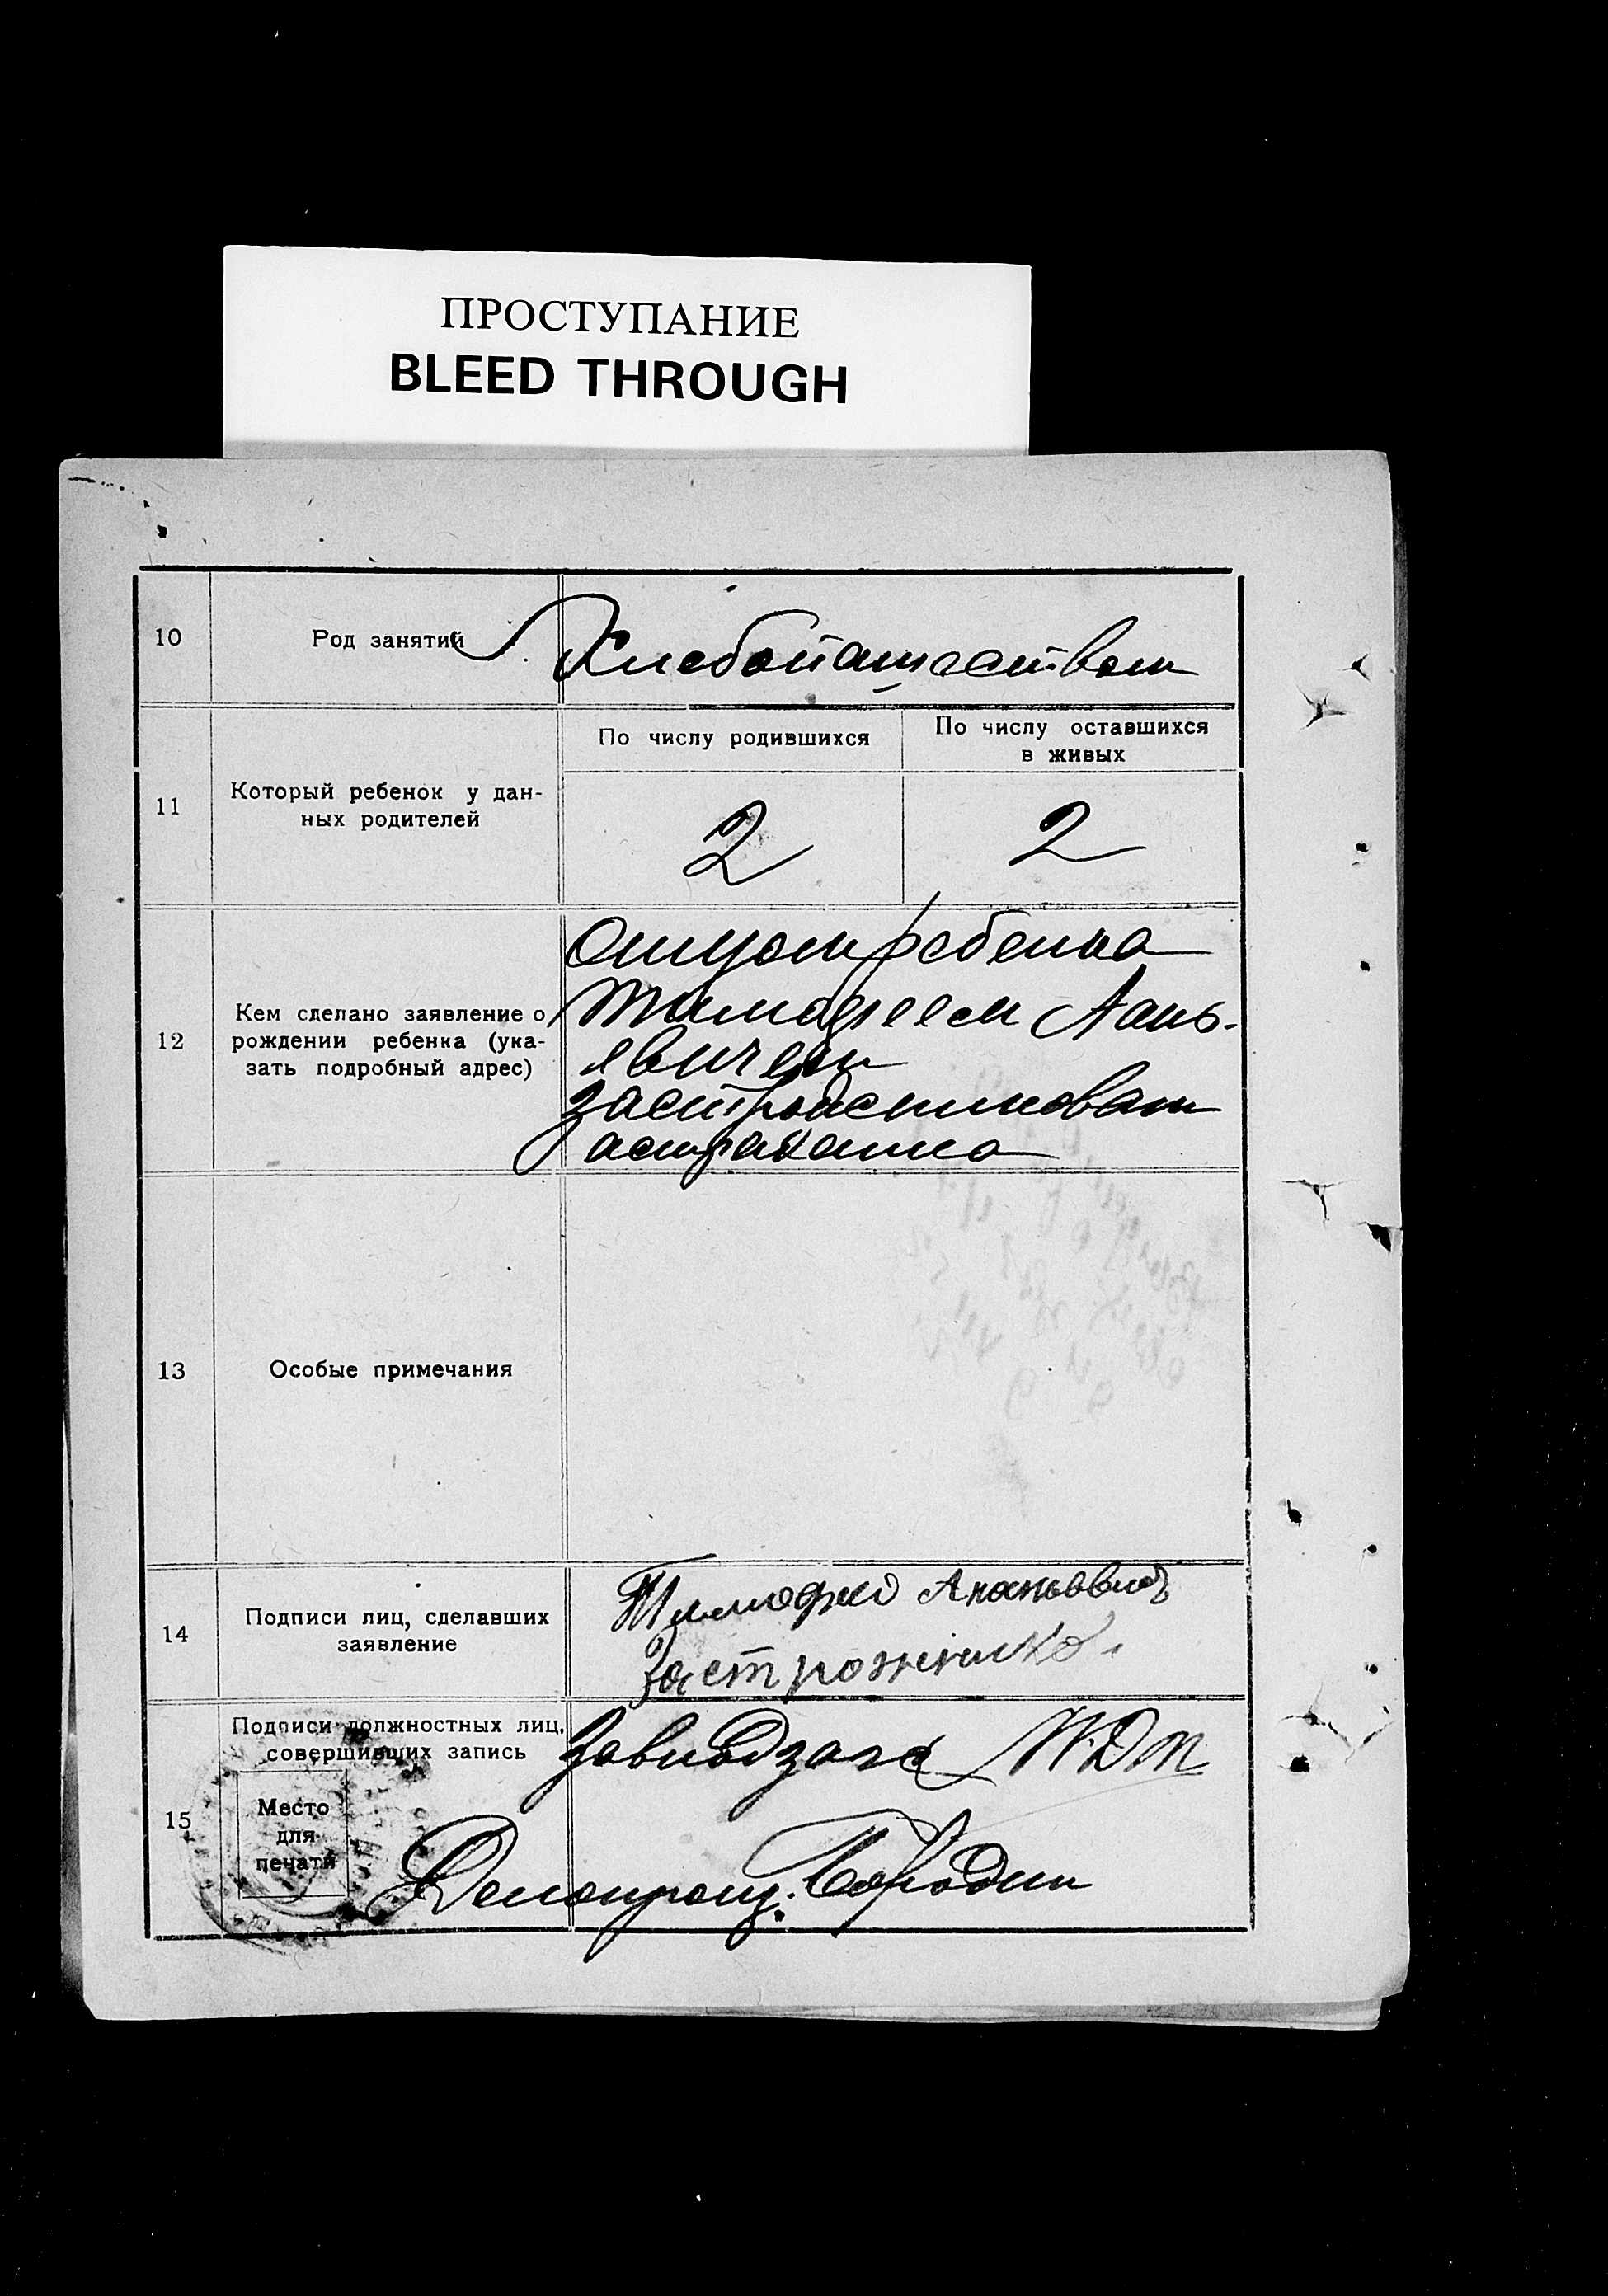 ПРОСТУПАНИЕ
BLEED THROUGH
10
Род занятий
Хлебопашеством
11
Который ребенок у дан-
ных родителей
По числу родившихся
По числу оставшихся
в живых
2
2
12
Кем сделано заявление о
рождении ребенка (ука-
зать подробный адрес)
Отцом ребенка
Тимофеем Аань-
евичем
астраханка
13
Особые примечания
14
Подписи лиц, сделавших
заявление
Тимофей Ананьевич
Застрожнико
15
Подписи должностных лиц,
совершивших запись
Место
для
печати
Делопроиз. Бородин